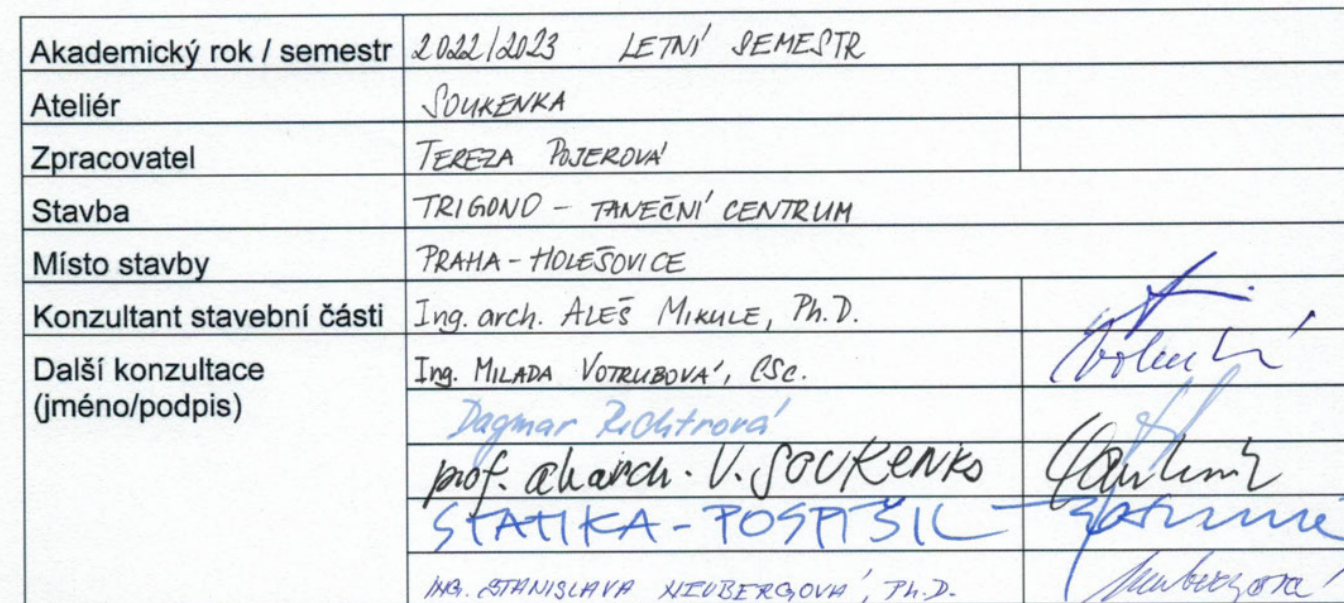 Akademický rok / semestr 2022/2023 LETNÍ SEMESTR
Ateliér SOUKENKA
Zpracovatel TEREZA POJEROVÁ
Stavba TRIGONO - TANEČNÍ CENTRUM
Místo stavby PRAHA - HOLEŠOVICE
Konzultant stavební části Ing. arch. ALEŠ MIKULE, Ph.D.
Další konzultace Ing. MILADA VOTRUBOVÁ, CSc.
(jméno/podpis) Dagmar Richtrová
prof. ak. arch. V. SOUKENKA
STATIKA - POSPÍŠIL
ING. STANISLAVA NEUBERGOVÁ, Ph.D.